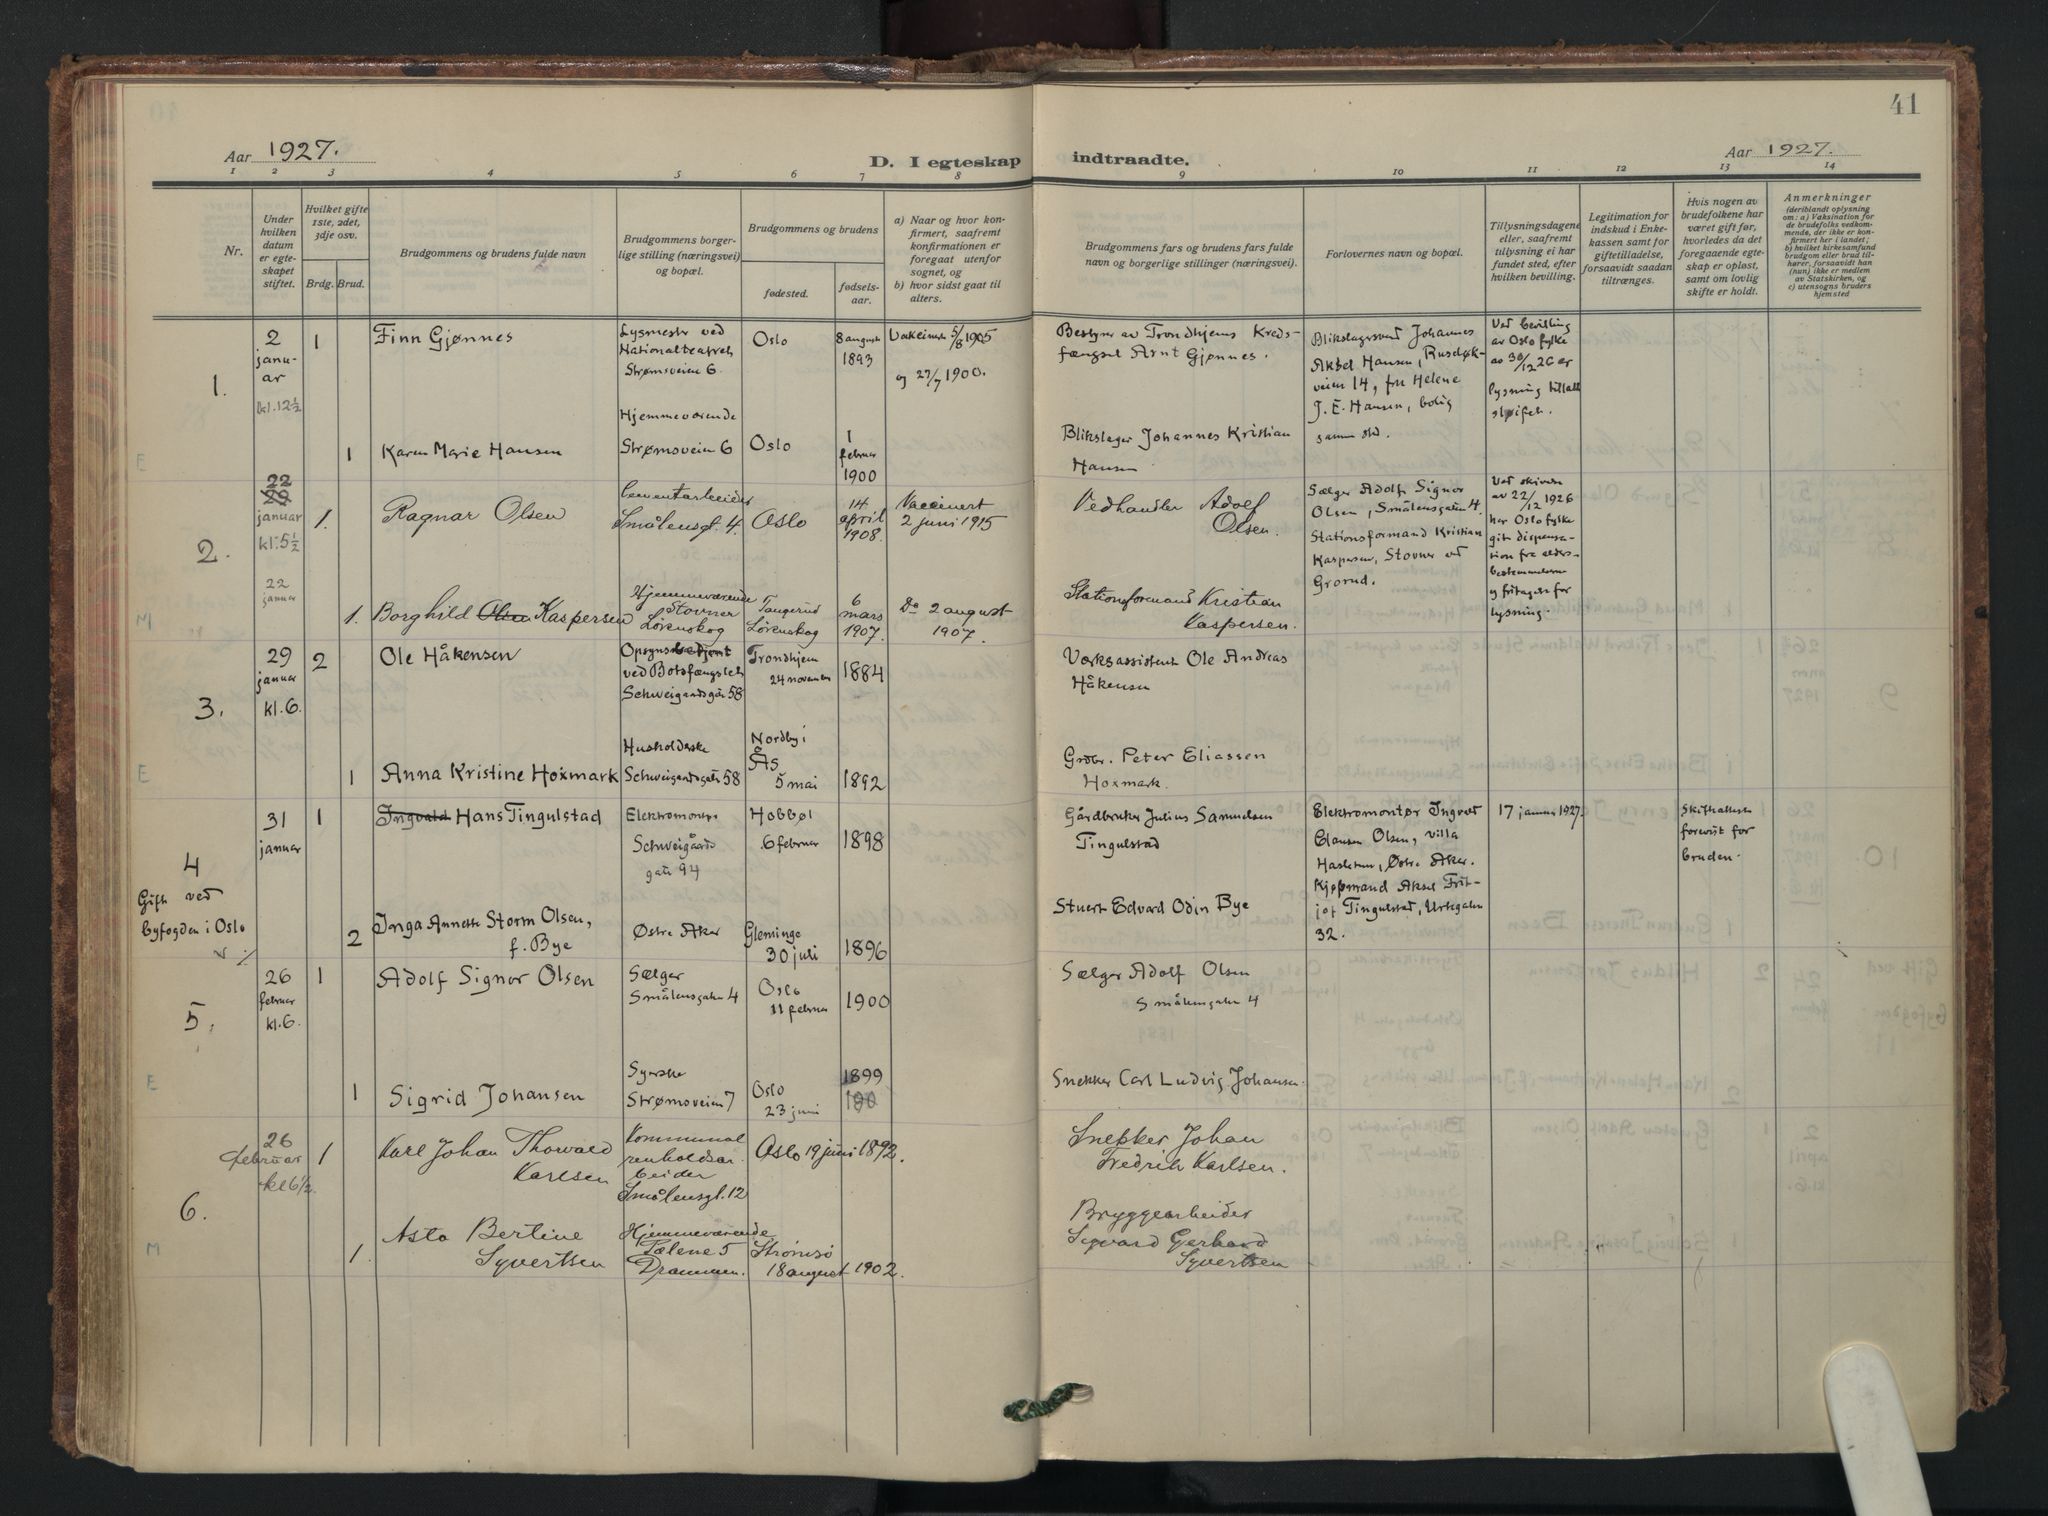 41
Aar 1927.
D. I egteskap indtraadte.
Aar 1927.
1 2 3 4 5 6 7 8 9 10 11 12 13 14
Nr.
Under hvilken datum er egte-skapet stiftet.
Hvilket gifte 1ste, 2det, 3dje osv.
Brdg. Brud.
Brudgommens og brudens fulde navn
Brudgommens borger-lige stilling (næringsvei) og bopæl.
Brudgommens og brudens
fødested.
fødsels-aar.
a) Naar og hvor kon-firmert, saafremt konfirmationen er foregaat utenfor sognet, og
b) hvor sidst gaat til alters.
Brudgommens fars og brudens fars fulde navn og borgerlige stillinger (næringsvei).
Forlovernes navn og bopæl.
Tillysningsdagene eller, saafremt tillysning ei har fundet sted, efter hvilken bevilling.
Legitimation for indskud i Enke-kassen samt for giftetilladelse, forsaavidt saadan tiltrænges.
Hvis nogen av brudefolkene har været gift før, hvorledes da det foregaaende egte-skap er opløst, samt om lovlig skifte er holdt.
Anmerkninger
(deriblandt oplysning om: a) Vaksination for de brudefolks vedkom-mende, der ikke er kon-firmert her i landet; b) hvilket kirkesamfund brudgom eller brud til-hører, forsaavidt han (hun) ikke er medlem av Statskirken, og c) utensogns bruders hjemsted
1.
2 janu-ar kl. 12½
1
Finn Gjønnes
Lysmester ved Nationalteatret Strømsveien 6
Oslo
8 august 1893
5/8 1905 og 27/7 1900.
Bestyrer av Trondhjems Kreds-fængsel Arnt Gjønnes.
Blikslagersvend Johannes Aksel Hansen, Ruseløk-veien 14, fru Helene J. E. Hansen, bolig samme sted.
Ved bevilling av Oslo fylke av 30/12 26 er lysning tillatt sløifet.
E
1
Karen Marie Hansen
Hjemmeværende Strømsveien 6
Oslo
1 februar 1900
Blikslager Johannes Kristian Hansen
2.
22 januar kl. 5½
1.
Ragnar Olsen
Cementarbeider Smålensgt. 4.
Oslo
14 april 1908.
Vaccinert 2 juni 1915
Vedhandler Adolf Olsen.
Sælger Adolf Signor Olsen, Smålensgaten 4.
Stationsformand Kristian Kaspersen, Stovner ved Grorud.
Ved skrivelse av 22/12 1926 har Oslo fylke git dispensa-tion fra alders-bestemmelsene og fritagelse for lysning.
22 januar
M
1.
Borghild Olsen Kaspersen
Hjemmeværende Stovner Lørenskog
Tangerud Lørenskog
6 mars 1907.
Do 2 august 1907.
Stationsformand Kristian Kaspersen.
3.
29 januar kl. 6.
2
Ole Håkensen
Opsynsbetjent ved Botsfængslet Schweigaardsgate 58
Trondhjem 24 november
1884
Værksassistent Ole Andreas Håkensen
E
1
Anna Kristine Hoxmark
Husholderske Schweigaardsgate 58
Nordby i Ås 5 mai
1892
Grdbr. Peter Eliassen Hoxmark.
4
Gift ved byfogden i Oslo
31 januar
1
Ingvald Hans Tingulstad
Elektromontør Schweigårds gate 94
Hobbøl 6 februar
1898
Gårdbruker Julius Samuelsen Tingulstad
Elektromontør Ingvar Clausen Olsen, villa Hasletun, Østre Aker.
Kjøpmand Aksel Frit-jof Tingulstad, Urtegaten 32.
17 januar 1927.
Skifteattest forevist for bruden.
2
Inga Annette Storm Olsen, f. Bye
Østre Aker
Glemminge 30 juli
1896
Stuert Edvard Odin Bye
5.
26 februar kl. 6.
1
Adolf Signor Olsen
Sælger Smålensgaten 4
Oslo 11 februar
1900
Sælger Adolf Olsen Smålensgaten 4
E
1
Sigrid Johansen
Syerske Strømsveien 7
Oslo 23 juni
1899
190
Snekker Carl Ludvig Johansen
6.
26 februar kl 6½.
1
Karl Johan Thorvald Karlsen
Kommunal renholdsar-beider Smålensgt. 12
Oslo 19 juni 1892.
Snekker Johan Fredrik Karlsen.
M
1.
Asta Bertine Syvertsen
Hjemmeværende Tælene 5 Drammen.
Strømsø 18 august 1902.
Bryggearbeider Syvard Gerhard Syvertsen